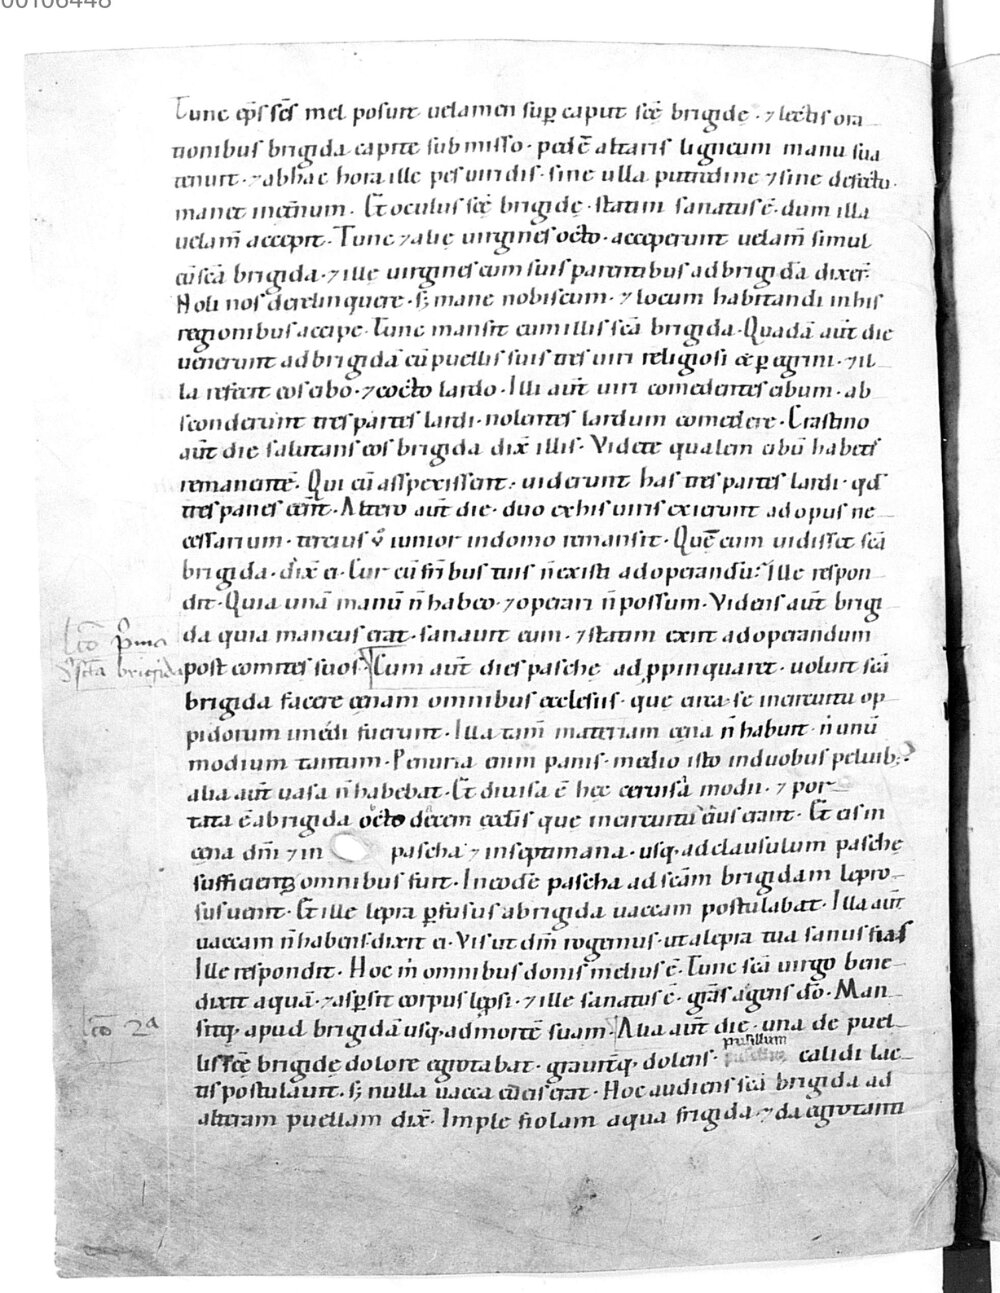 00106448
Tunc ep̄s sc̄s mel posuit uelamen sup̱ caput sc̄ę brigidę · ⁊ lectis ora
tionibus brigida capite submisso · pedē altaris ligneum manu sua
tenuit · ⁊ ab hac hora ille pes uiridis · sine ulla putredine ⁊ sine defectu ·
manet in ęt̄num · Et oculus sc̄ę brigidę · statim sanatus ē · dum illa
uelam̄ accepit · Tunc ⁊ alię uirgines octo · acceperunt uelam̄ simul
cū sc̄a brigida · ⁊ illę uirgines cum suis parentibus ad brigidā dixer̄ ·
Noli nos derelinquere · s; mane nobiscum · ⁊ locum habitandi in his
regionibus accipe · Tunc mansit cum illis sc̄a brigida · Quadā aut̄ die
uenerunt ad brigidā cū puellis suis tres uiri religiosi ⁊ p̱egrini · ⁊ il
la refecit eos cibo · ⁊ cocto lardo · Illi aut̄ uiri comedentes cibum · ab
sconderunt tres partes lardi · nolentes lardum comedere · Crastino
aut̄ die salutans eos brigida dix̄ illis · Videte qualem cibū habetis
remanentē · Qui cū asspexissent · uiderunt has tres partes lardi · qd̄
tres panes eēnt · Altero aut̄ die · duo ex his uiris exierunt ad opus ne
cessarium · tercius v̊ iunior in domo remansit · Quē cum uidisset sc̄a
brigida · dix̄ ei · Cur cū fr̄ibus tuis n̄ existi ad operandū · Ille respon
dit · Quia unā manū n̄ habeo · ⁊ operari n̄ possum · Videns aut̄ brigi
da quia mancus erat · sanauit eum · ⁊ statim exiit ad operandum
lc̄o p̊ma
sc̄ta brigida
post comites suos · Cum aut̄ dies paschę adp̱pinquaret · uoluit sc̄a
brigida facere cęnam omnibus ecclesiis · quę circa se in circuitu op
pidorum fuerunt · Illa tam̄ materiam cęna n̄ habuit · n̄ unū
modium tantum · Penuria enim panis · medio isto in duobus peluib;
alia aut̄ uasa n̄ habebat · Et diuisa ē hęc ceruisa modii · ⁊ por
tata ē a brigida octo decem ęcclis que in circuitu eius erant · Et eis in
cęna dn̄i ⁊ in pascha ⁊ in septimana · usq; ad clausulum paschę
sufficient; omnibus fuit · In eodē pascha ad sc̄am brigidam lepro
sus uenit · Et ille lepra p̱fusus a brigida uaccam postulabat · Illa aut̄
uaccam n̄ habens dixit ei · Vis ut dn̄m rogemus · ut a lepra tua sanus fias
Ille respondit · Hoc m̄ omnibus donis melius ē · Tunc sc̄a uirgo bene
dixit aquā · ⁊ aspersit corpus lep̱si · ⁊ ille sanatus ē · grās agens dō · Man
lc̄o 2ª
sitq; apud brigidā usq; ad mortē suam · Alia aut̄ die · una de puel
pusillum
lis sc̄ę brigidę dolore egrotabat · grauit̄q; dolens · calidi lac
tis postulauit · s; nulla uacca erat · Hoc audiens sc̄a brigida ad
alteram puellam dix̄ · Imple fiolam aqua frigida · ⁊ da egrotanti